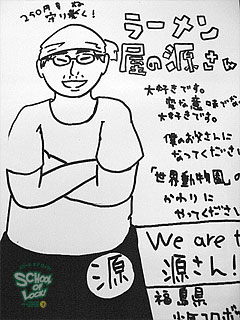 250円を
守り抜く！
ラーメン
屋の源さん
大好きです。
変な意味でな
大好きです。
僕のお父さんに
なってくださ
「世界動物園」の
かわりに
やってくださ
We are t
源さん！
源
福島県
SCHOOL
OF LOCK!